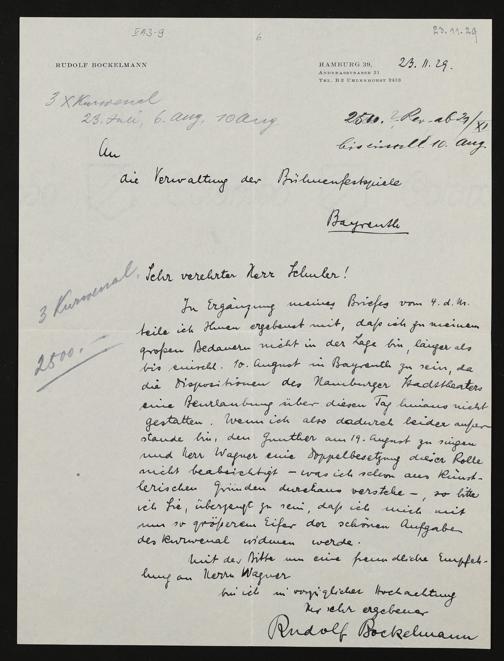 VA3-9
6
23.11.29
RUDOLF BOCKELMANN
HAMBURG 39, 23.11.29.
ANDREASSTRASSE 31
3 x Kurwenal
23. Juli, 6. Aug. 10 Aug
bis einschl. 10. Aug.
An
die Verwaltung der Bühnenfestspiele
Bayreuth
Sehr verehrter Herr Schuler!
3 Kurwenal.
2500.–
In Ergänzung meines Briefes vom 4. d. M.
teile ich Ihnen ergebenst mit, daß ich zu meinem
großen Bedauern nicht in der Lage bin, länger als
bis einschl. 10. August in Bayreuth zu sein, da
die Dispositionen des Hamburger Stadttheaters
eine Beurlaubung über diesen Tag hinaus nicht
gestatten. Wenn ich also dadurch leider außer
stande bin, den Gunther am 19. August zu singen
und Herr Wagner eine Doppelbesetzung dieser Rolle
nicht beabsichtigt – was ich schon aus künst-
lerischen Gründen durchaus verstehe –, so bitte
ich Sie, überzeugt zu sein, daß ich mich mit
um so größerem Eifer der schönen Aufgabe
des Kurwenal widmen werde.
Mit der Bitte um eine freundliche Empfeh-
lung an Herrn Wagner
bin ich in vorzüglicher Hochachtung
Ihr sehr ergebener
Rudolf Bockelmann